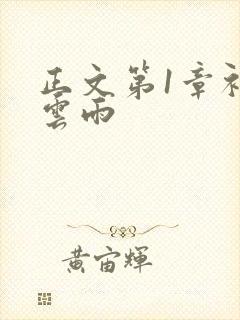 正文第1章初
雲雨
黄宙輝